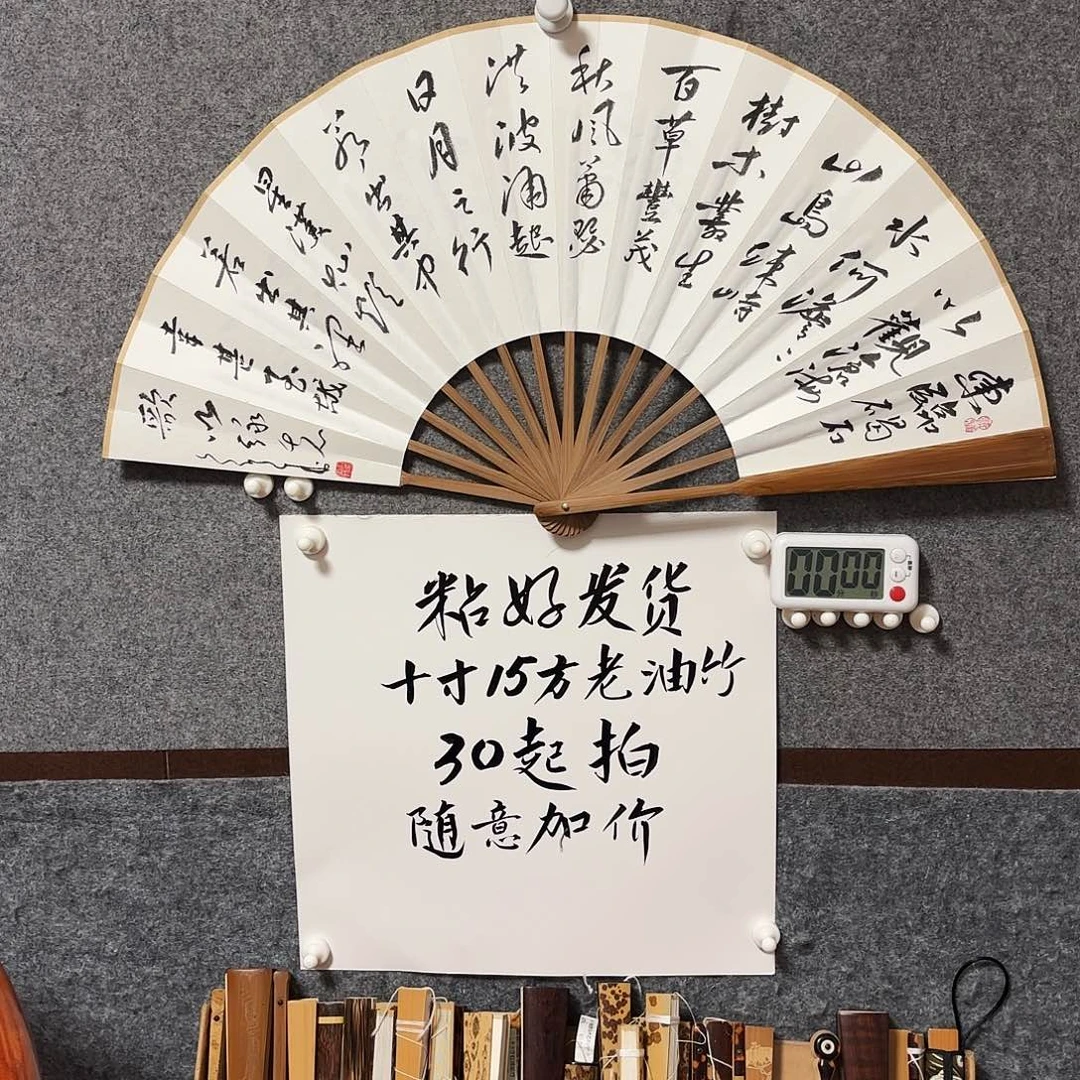 東臨碣石
以觀滄海
水何澹澹
山島竦峙
樹木叢生
百草豐茂
秋風蕭瑟
洪波涌起
日月之行
若出其中
星漢灿爛
若出其裡
幸甚至哉
歌以詠志
粘好发货
十寸15方老油竹
30起拍
随意加价
00:00